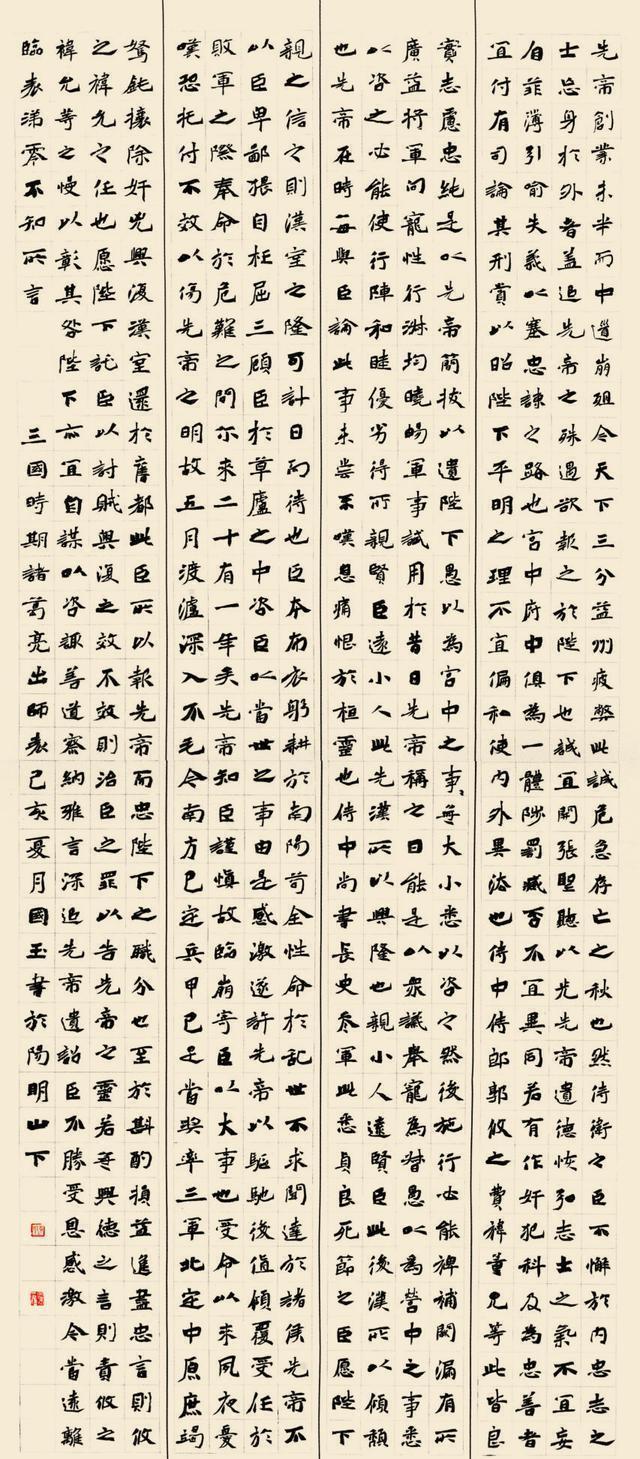 先帝創業未半而中道崩殂今天下三分益州疲弊此誠危急存亡之秋也然侍衛之臣不懈於內忠志之
士忘身於外者蓋追先帝之殊遇欲報之於陛下也誠宜開張聖聽以光先帝遺德恢弘志士之氣不宜妄
自菲薄引喻失義以塞忠諫之路也宮中府中俱為一體陟罰臧否不宜異同若有作奸犯科及為忠善者
宜付有司論其刑賞以昭陛下平明之理不宜偏私使內外異法也侍中侍郎郭攸之費禕董允等此皆良
實志慮忠純是以先帝簡拔以遺陛下愚以為宮中之事每大小悉以咨之然後施行必能裨補闕漏有所
廣益將軍向寵性行淑均曉暢軍事試用於昔日先帝稱之曰能是以眾議舉寵為督愚以為營中之事悉
以咨之必能使行陣和睦優劣得所親賢臣遠小人此先漢所以興隆也親小人遠賢臣此後漢所以傾頹
也先帝在時每與臣論此事未嘗不嘆息痛恨於桓靈也侍中尚書長史參軍此悉貞良死節之臣愿陛下
親之信之則漢室之隆可計日而待也臣本布衣躬耕於南陽苟全性命於亂世不求聞達於諸侯先帝不
以臣卑鄙猥自枉屈三顧臣於草廬之中咨臣以當世之事由是感激遂許先帝以驅馳後值傾覆受任於
敗軍之際奉命於危難之間尔來二十有一年矣先帝知臣謹慎故臨崩寄臣以大事也受命以來夙夜憂
嘆恐托付不效以傷先帝之明故五月渡瀘深入不毛今南方已定兵甲已足當獎率三軍北定中原庶竭
駑鈍攘除奸兇興復漢室還於舊都此臣所以報先帝而忠陛下之職分也至於斟酌損益進盡忠言則攸
之禕允之任也愿陛下託臣以討賊興復之效不效則治臣之罪以告先帝之靈若無興德之言則責攸之
禕允等之慢以彰其咎陛下亦宜自謀以咨諏善道察納雅言深追先帝遺詔臣不勝受恩感激今當遠離
臨表涕零不知所言 三國時期諸葛亮出師表己亥夏月國玉書於陽明山下